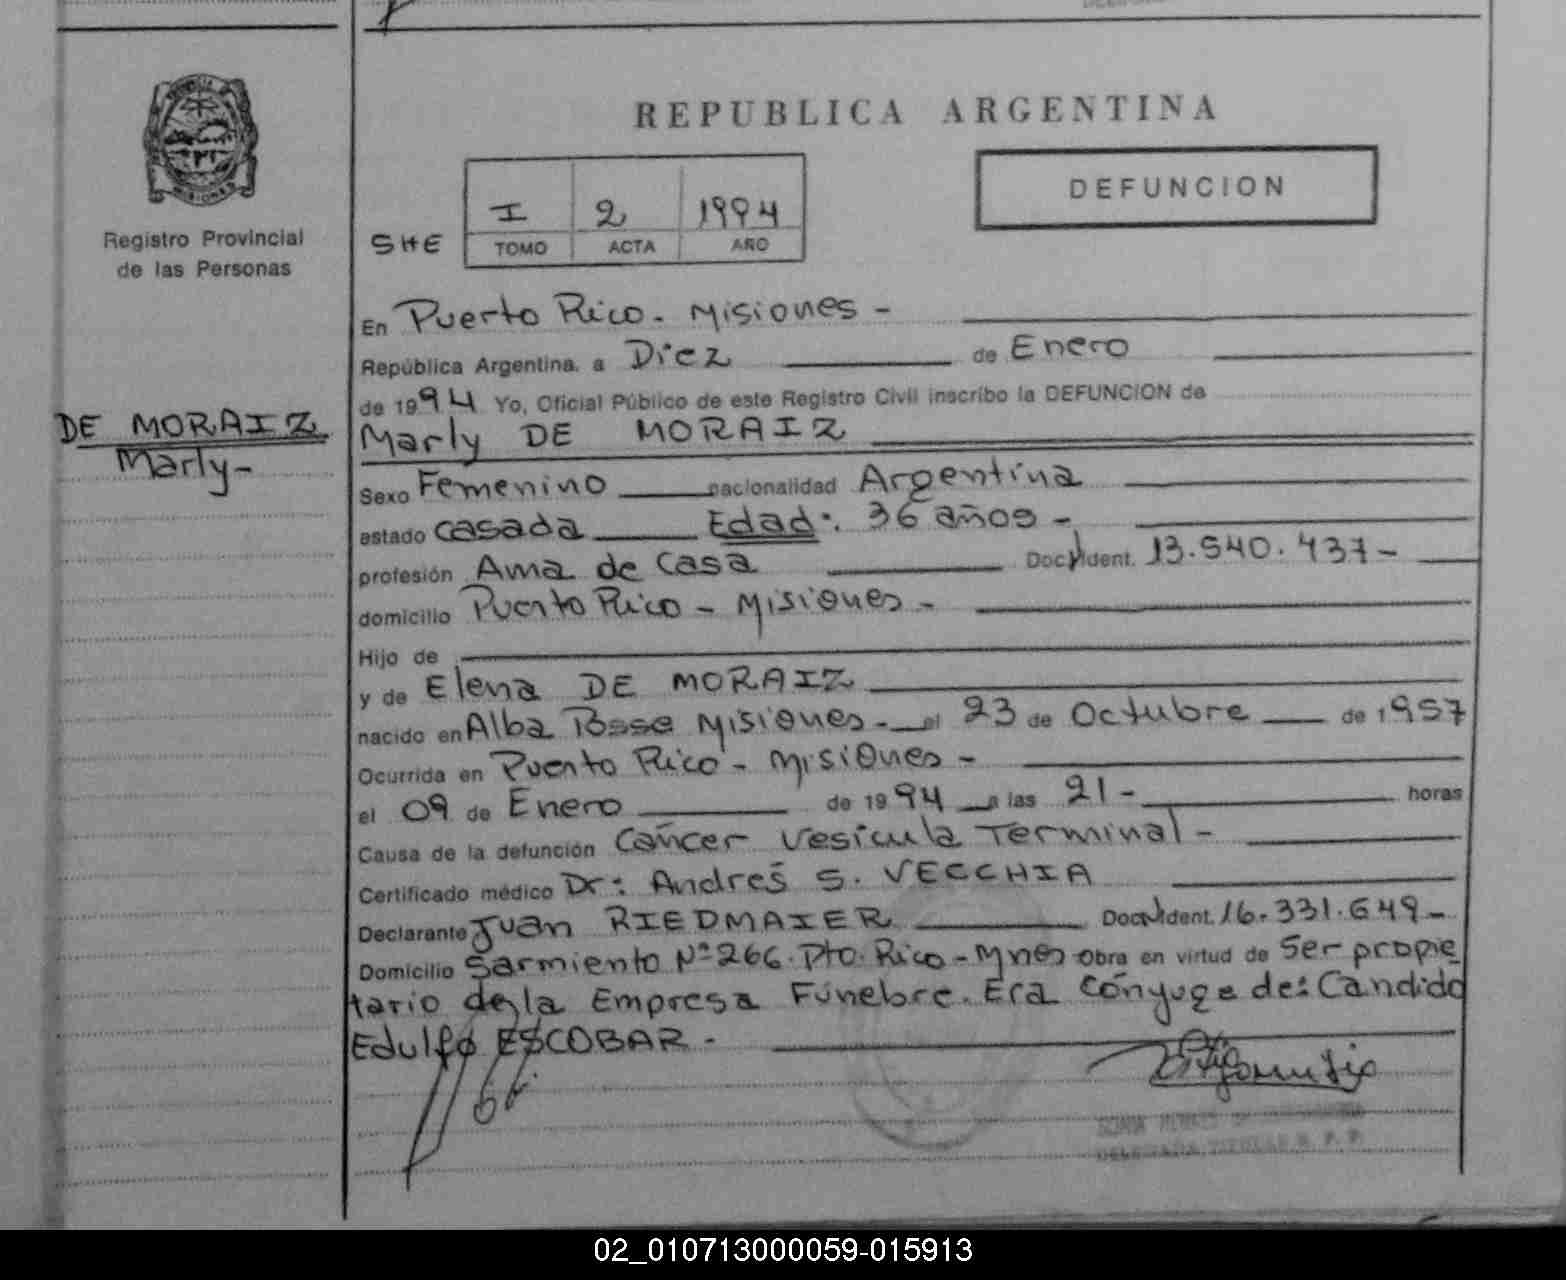 REPUBLICA ARGENTINA
DEFUNCION
I 2 1994
SHE TOMO ACTA AÑO
MISIONES
Registro Provincial
de las Personas
DE MORAIZ
Marly-
En Puerto Rico - Misiones -
República Argentina, a Diez de Enero
de 1994 Yo, Oficial Público de este Registro Civil inscribo la DEFUNCION de
Marly DE MORAIZ
Sexo Femenino nacionalidad Argentina
estado casada Edad: 36 años -
profesión Ama de Casa Doc. Ident. 13.540.437-
domicilio Puerto Rico - Misiones -
Hijo de
y de Elena DE MORAIZ
nacido en Alba Posse Misiones - el 23 de Octubre de 1957
Ocurrida en Puerto Rico - Misiones -
el 09 de Enero de 1994 a las 21 - horas
Causa de la defunción Cáncer Vesícula Terminal -
Certificado médico Dr: Andrés S. VECCHIA
Declarante Juan RIEDMAIER Doc. Ident. 16.331.649-
Domicilio Sarmiento Nº 266. Pto. Rico - Mnes obra en virtud de Ser propie
tario de la Empresa Fúnebre. Era Cónyuge de: Candido
Edulfo ESCOBAR -
02_010713000059-015913